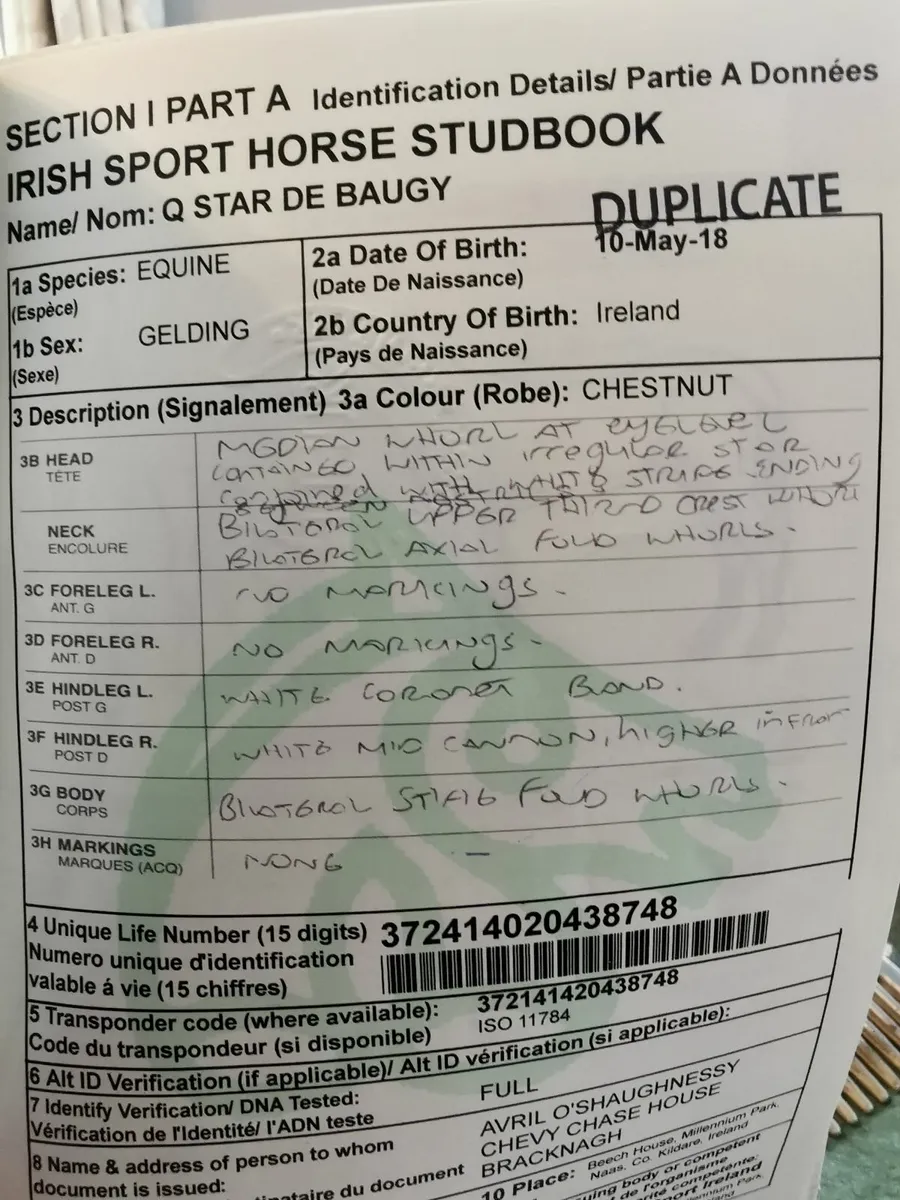 SECTION I PART A Identification Details/ Partie A Données
IRISH SPORT HORSE STUDBOOK
Name/ Nom: Q STAR DE BAUGY
DUPLICATE
1a Species: EQUINE
(Espèce)
1b Sex: GELDING
(Sexe)
2a Date Of Birth: 10-May-18
(Date De Naissance)
2b Country Of Birth: Ireland
(Pays de Naissance)
3 Description (Signalement) 3a Colour (Robe): CHESTNUT
3B HEAD
TÉTE
MEDIAN WHORL AT eyeLevel
CONTAINED WITHIN irregular STAR
WITH WHITE STRIPE ENDING
NECK
ENCOLURE
BILATERAL UPPER THIRD CREST WHORL
BILATERAL AXIAL FOLD WHORLS.
3C FORELEG L.
ANT. G
NO MARKINGS.
3D FORELEG R.
ANT. D
NO MARKINGS.
3E HINDLEG L.
POST G
WHITE CORONET BAND.
3F HINDLEG R.
POST D
WHITE MID CANNON, higHER in FRONT
3G BODY
CORPS
BILATERAL STIFLE FOLD WHORLS.
3H MARKINGS
MARQUES (ACQ)
NONE -
4 Unique Life Number (15 digits) 372414020438748
Numero unique d'identification
valable á vie (15 chiffres)
5 Transponder code (where available): 372141420438748
Code du transpondeur (si disponible) ISO 11784
6 Alt ID Verification (if applicable)/ Alt ID vérification (si applicable):
7 Identify Verification/ DNA Tested: FULL
Vérification de l'Identité/ l'ADN teste
8 Name & address of person to whom
document is issued:
AVRIL O'SHAUGHNESSY
CHEVY CHASE HOUSE
BRACKNAGH
du document
10 Place: Beech House, Millennium Park,
Naas, Co. Kildare, Ireland
body or competent
de l'organisme
compétente:
Ireland